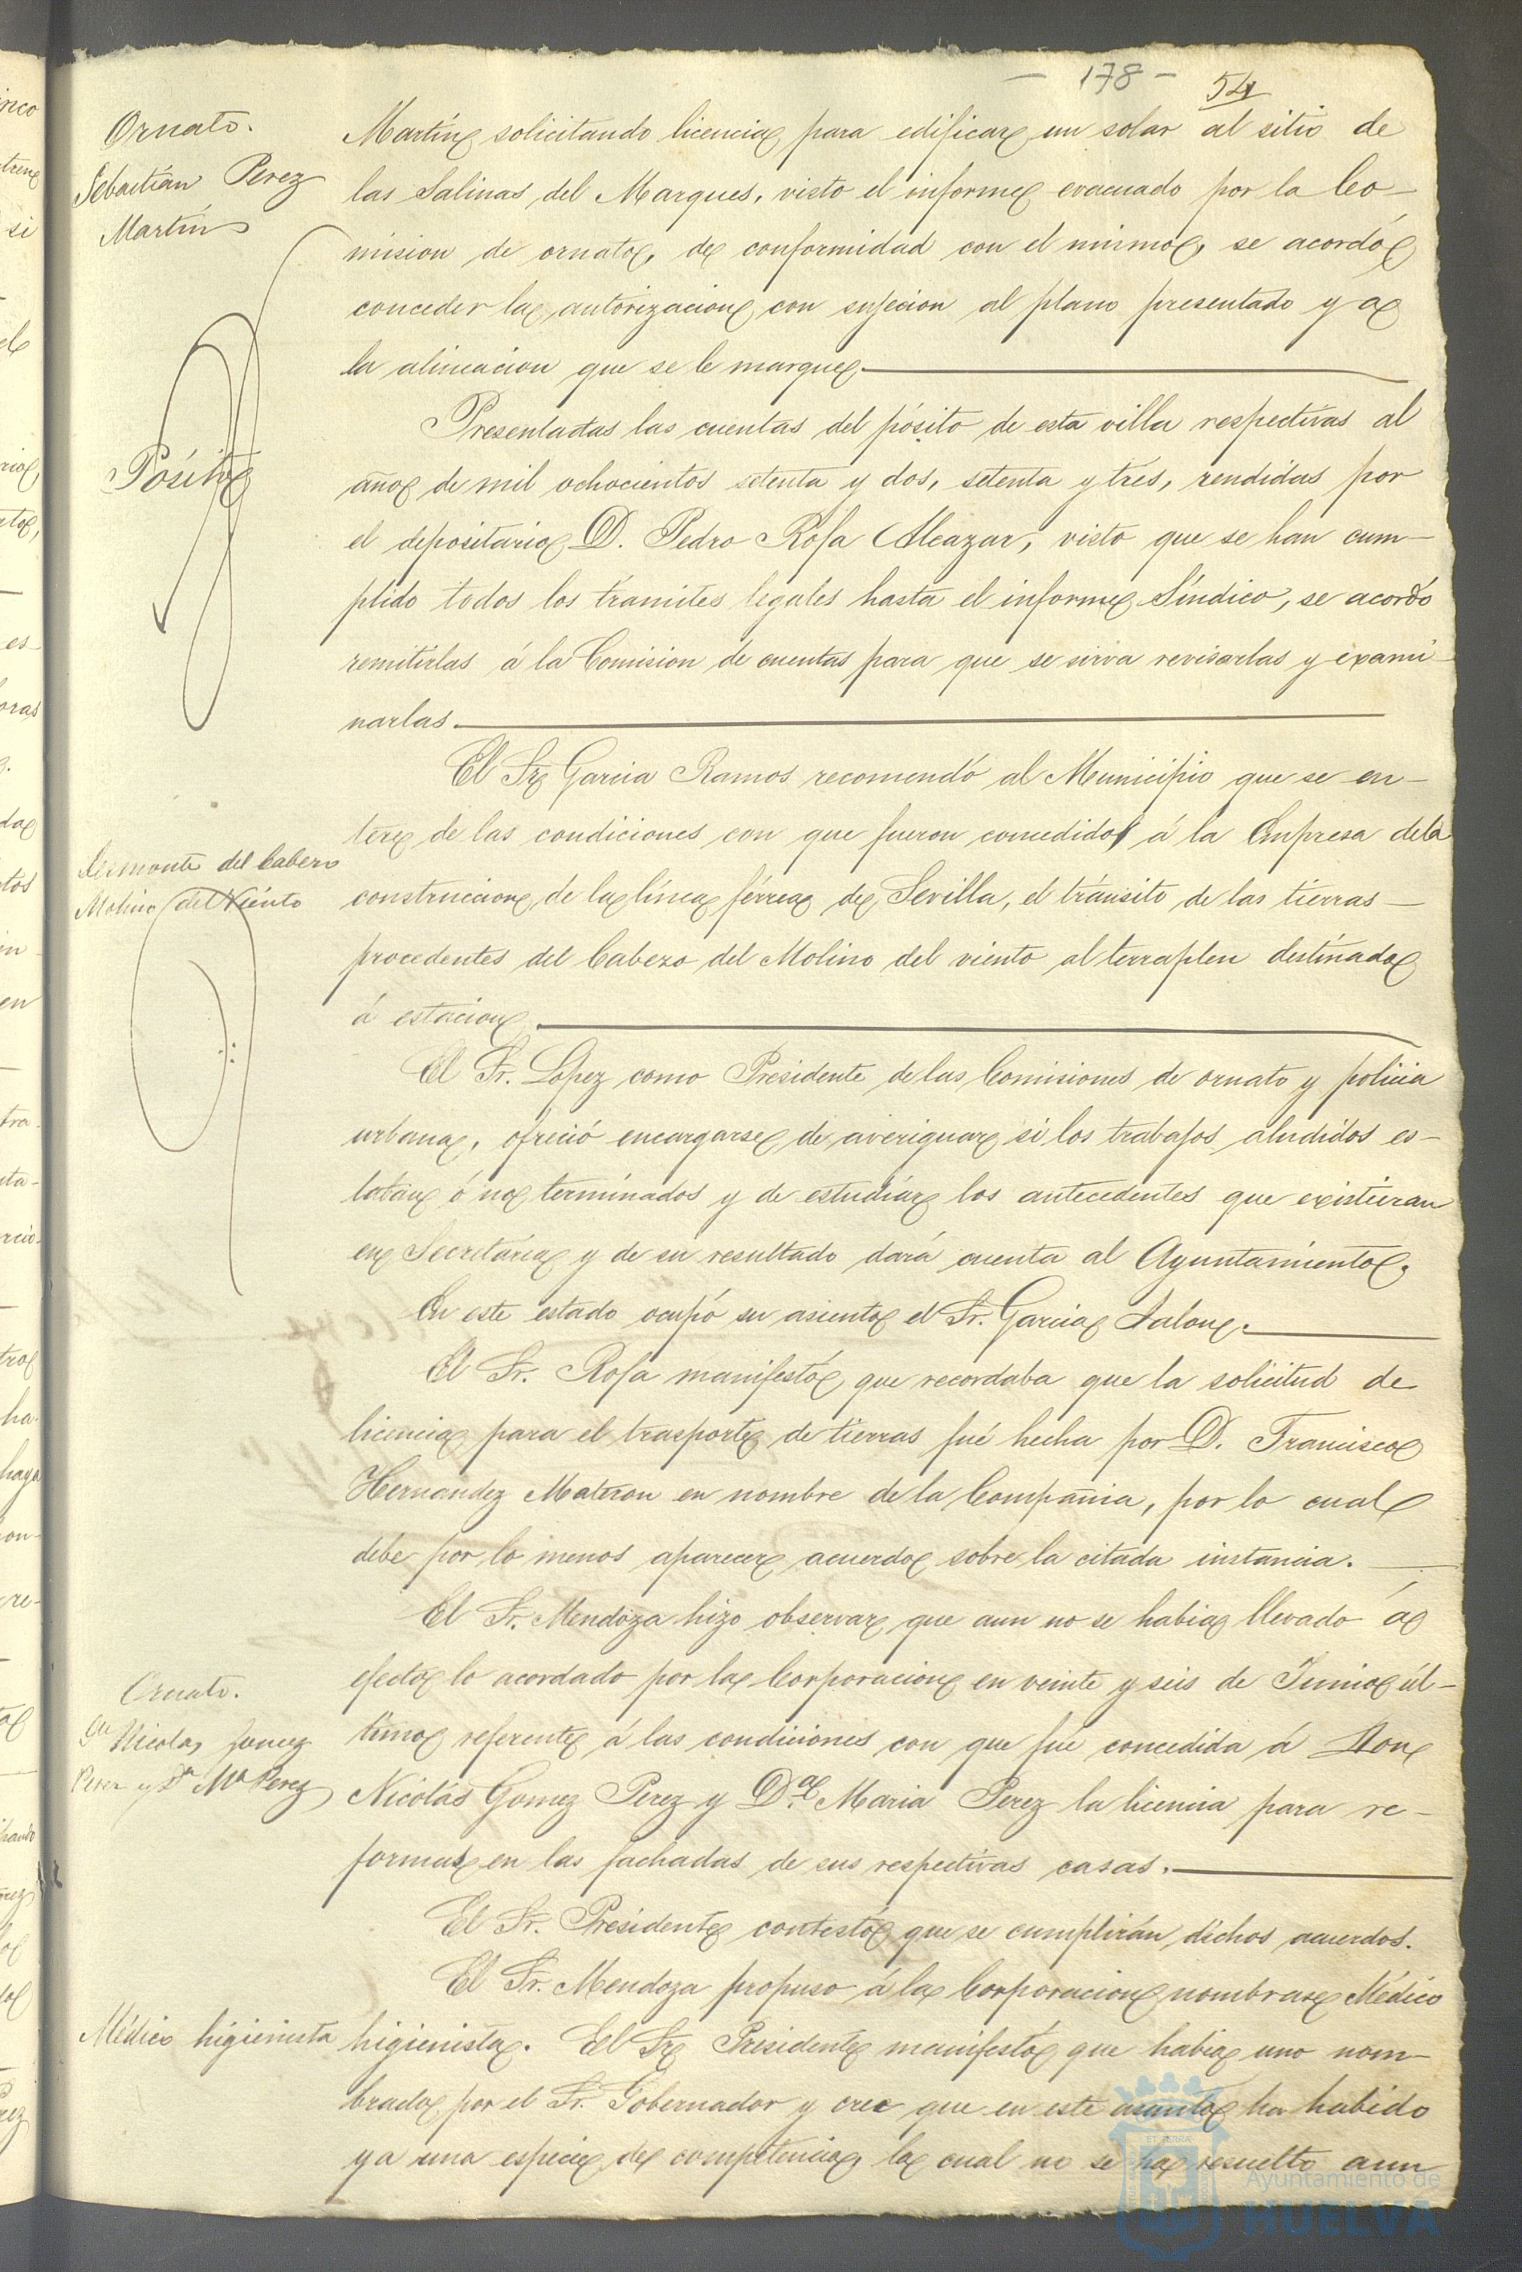 - 178 -
54
Ornato.
Sebastian Perez
Martin
Martin solicitando licencia para edificar un solar al sitio de
las Salinas del Marques, visto el informe evacuado por la Co-
mision de ornato, de conformidad con el mismo, se acordó
conceder la autorizacion con sujecion al plano presentado y a
la alineacion que se le marque.
Pósito
Presentadas las cuentas del pósito de esta villa respectivas al
año de mil ochocientos setenta y dos, setenta y tres, rendidas por
el depositario D. Pedro Rofa Alcazar, visto que se han cum-
plido todos los trámites legales hasta el informe Síndico, se acordó
remitirlas á la Comision de cuentas para que se sirva revisarlas y exami-
narlas.
Desmonte del Cabezo
Molino del Viento
El Sr Garcia Ramos recomendó al Municipio que se en-
tere de las condiciones con que fueron concedidos á la Empresa de la
construccion de la línea férrea de Sevilla, el tránsito de las tierras
procedentes del Cabezo del Molino del viento al terraplen destinado
á estacion.
El Sr. Lopez como Presidente de las Comisiones de ornato y policia
urbana, ofreció encargarse de averiguar si los trabajos aludidos es-
taban ó no terminados y de estudiar los antecedentes que existieran
en Secretaria y de su resultado dará cuenta al Ayuntamiento.
En este estado ocupó su asiento el Sr. Garcia Jalon.
El Sr. Rofa manifestó que recordaba que la solicitud de
licencia para el trasporte de tierras fué hecha por D. Francisco
Hernandez Materon en nombre de la Compañia, por lo cual
debe por lo menos aparecer acuerdo sobre la citada instancia.
El Sr. Mendoza hizo observar que aun no se habia llevado á
efecto lo acordado por la Corporacion en veinte y seis de Junio úl-
timo referente á las condiciones con que fué concedida á Don
Nicolás Gomez Perez y D.ª Maria Perez la licencia para re-
formar en las fachadas de sus respectivas casas.
Ornato.
Nicolas Gomez
Perez y Dª Mª Perez
El Sr. Presidente contestó que se cumplirán dichos acuerdos.
El Sr. Mendoza propuso á la Corporacion nombrase Médico
Médico higienista
higienista. El Sr Presidente manifestó que habia uno nom-
brado por el Sr. Gobernador y cree que en este asunto ha habido
ya una especie de competencia, la cual no se ha resuelto aun
Ayuntamiento de
HUELVA